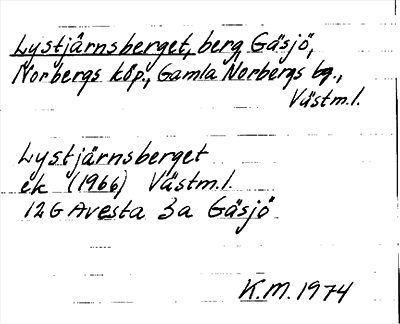 Lystjärnsberget, berg Gäsjö,
Norbergs köp., Gamla Norbergs bg.,
Västm.l.
Lystjärnsberget
ek (1966) Västm.l.
12G Avesta 3a Gäsjö
K.M. 1974